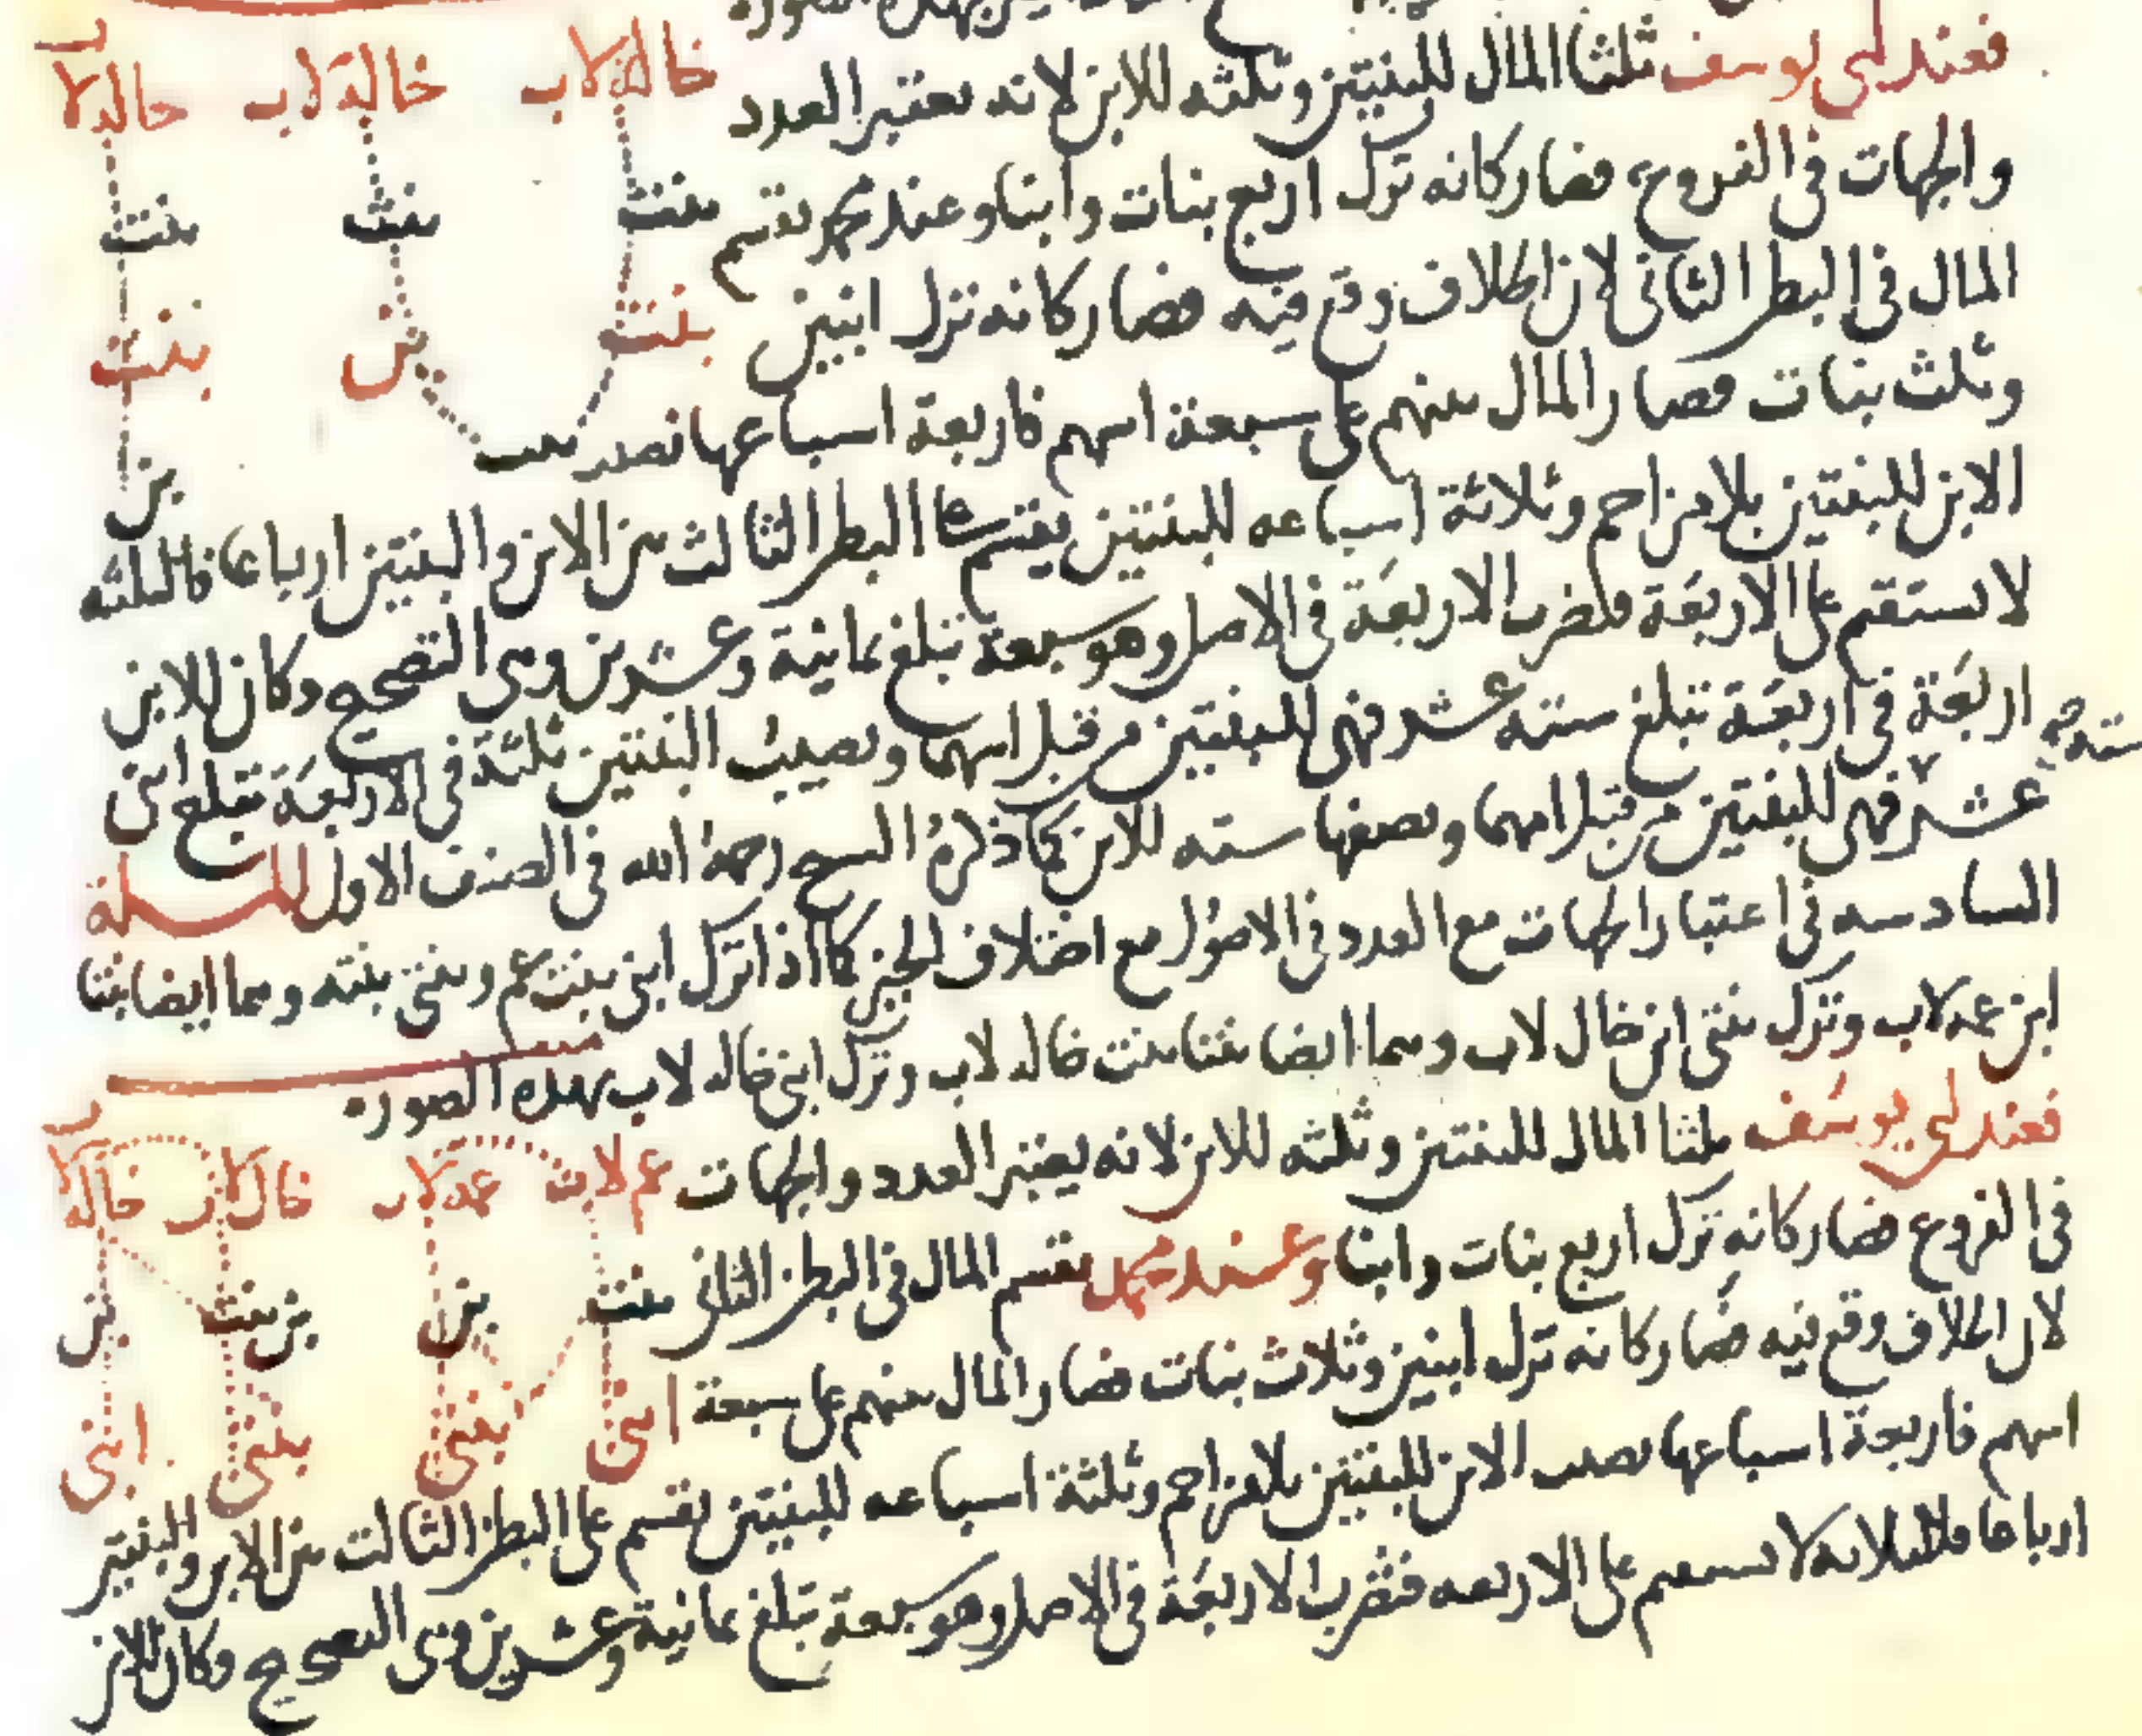 فعند ابي يوسف ثلثا المال للبنتين وثلثه للابن لانه يعتبر العدد
والجهات في الفروع فصار كانه ترك اربع بنات وابنا وعند محمد يقسم
المال في البطن الثاني لان الخلاف وقع فيه فصار كانه ترك ابنين
وثلث بنات فصار المال بينهم على سبعة اسهم فاربعة اسباعها نصيب
الابن للبنتين بلا مزاحم وثلاثة اسباعه للبنتين يقسم على البطن الثالث بين الابن والبنتين ارباعا فالثلثه
لا يستقيم على الاربعة فنضرب الاربعة في الاصل وهو سبعة تبلغ ثمانية وعشرين ومن التصحيح وكان للابن
اربعة في اربعة تبلغ ستة عشر فهي للبنتين من قبل ابيهما ونصيب البنتين ثلثة في الاربعة تبلغ اثنى
عشر ستة فهي للبنتين من قبل امهما ونصفها سته للابن كما ذكره الشيخ رحمه الله في الصنف الاول المسئلة
السادسه في اعتبار الجهات مع العدد في الاصول مع اختلاف الحيز كما اذا ترك ابنى بنت عم وبنتى بنته وهما ايضا بنتا
ابن عمة لاب وترك بنتى ابن خال لاب وهما ايضا بنتا بنت خاله لاب وترك ابنى خاله لاب بهذه الصوره
فعند ابي يوسف ثلثا المال للبنتين وثلثه للابن لانه يعتبر العدد والجهات
في الفروع فصار كانه ترك اربع بنات وابنا وعند محمد يقسم المال في البطن الثانى
لان الخلاف وقع فيه فصار كانه ترك ابنين وثلاث بنات فصار المال بينهم على سبعة
اسهم فاربعة اسباعها نصيب الابن للبنتين بلا مزاحم وثلثة اسباعه للبنتين يقسم على البطن الثالث بين الابن والبنتين
ارباعا فالثلاثه لا يستقيم على الاربعه فنضرب الاربعة في الاصل وهو سبعة تبلغ ثمانية وعشرين ومن التصحيح وكان للابن
خالة لاب خالة لاب خالة لا
بنت بنت بنت
بنت بن بنت
بنت بن
ميت
عم لاب عمة لاب خال لاب خاله لا ب
بنت بن بن بنت بن
ابنى بنتى بنتى ابنى